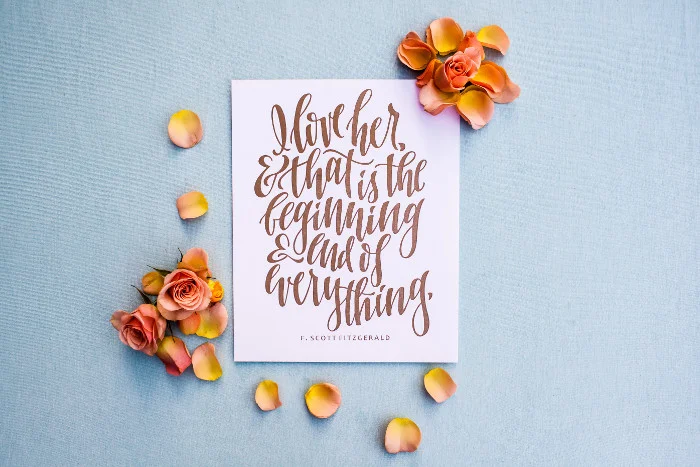 I love her,
& that is the
beginning
& end of
everything.
F. SCOTT FITZGERALD